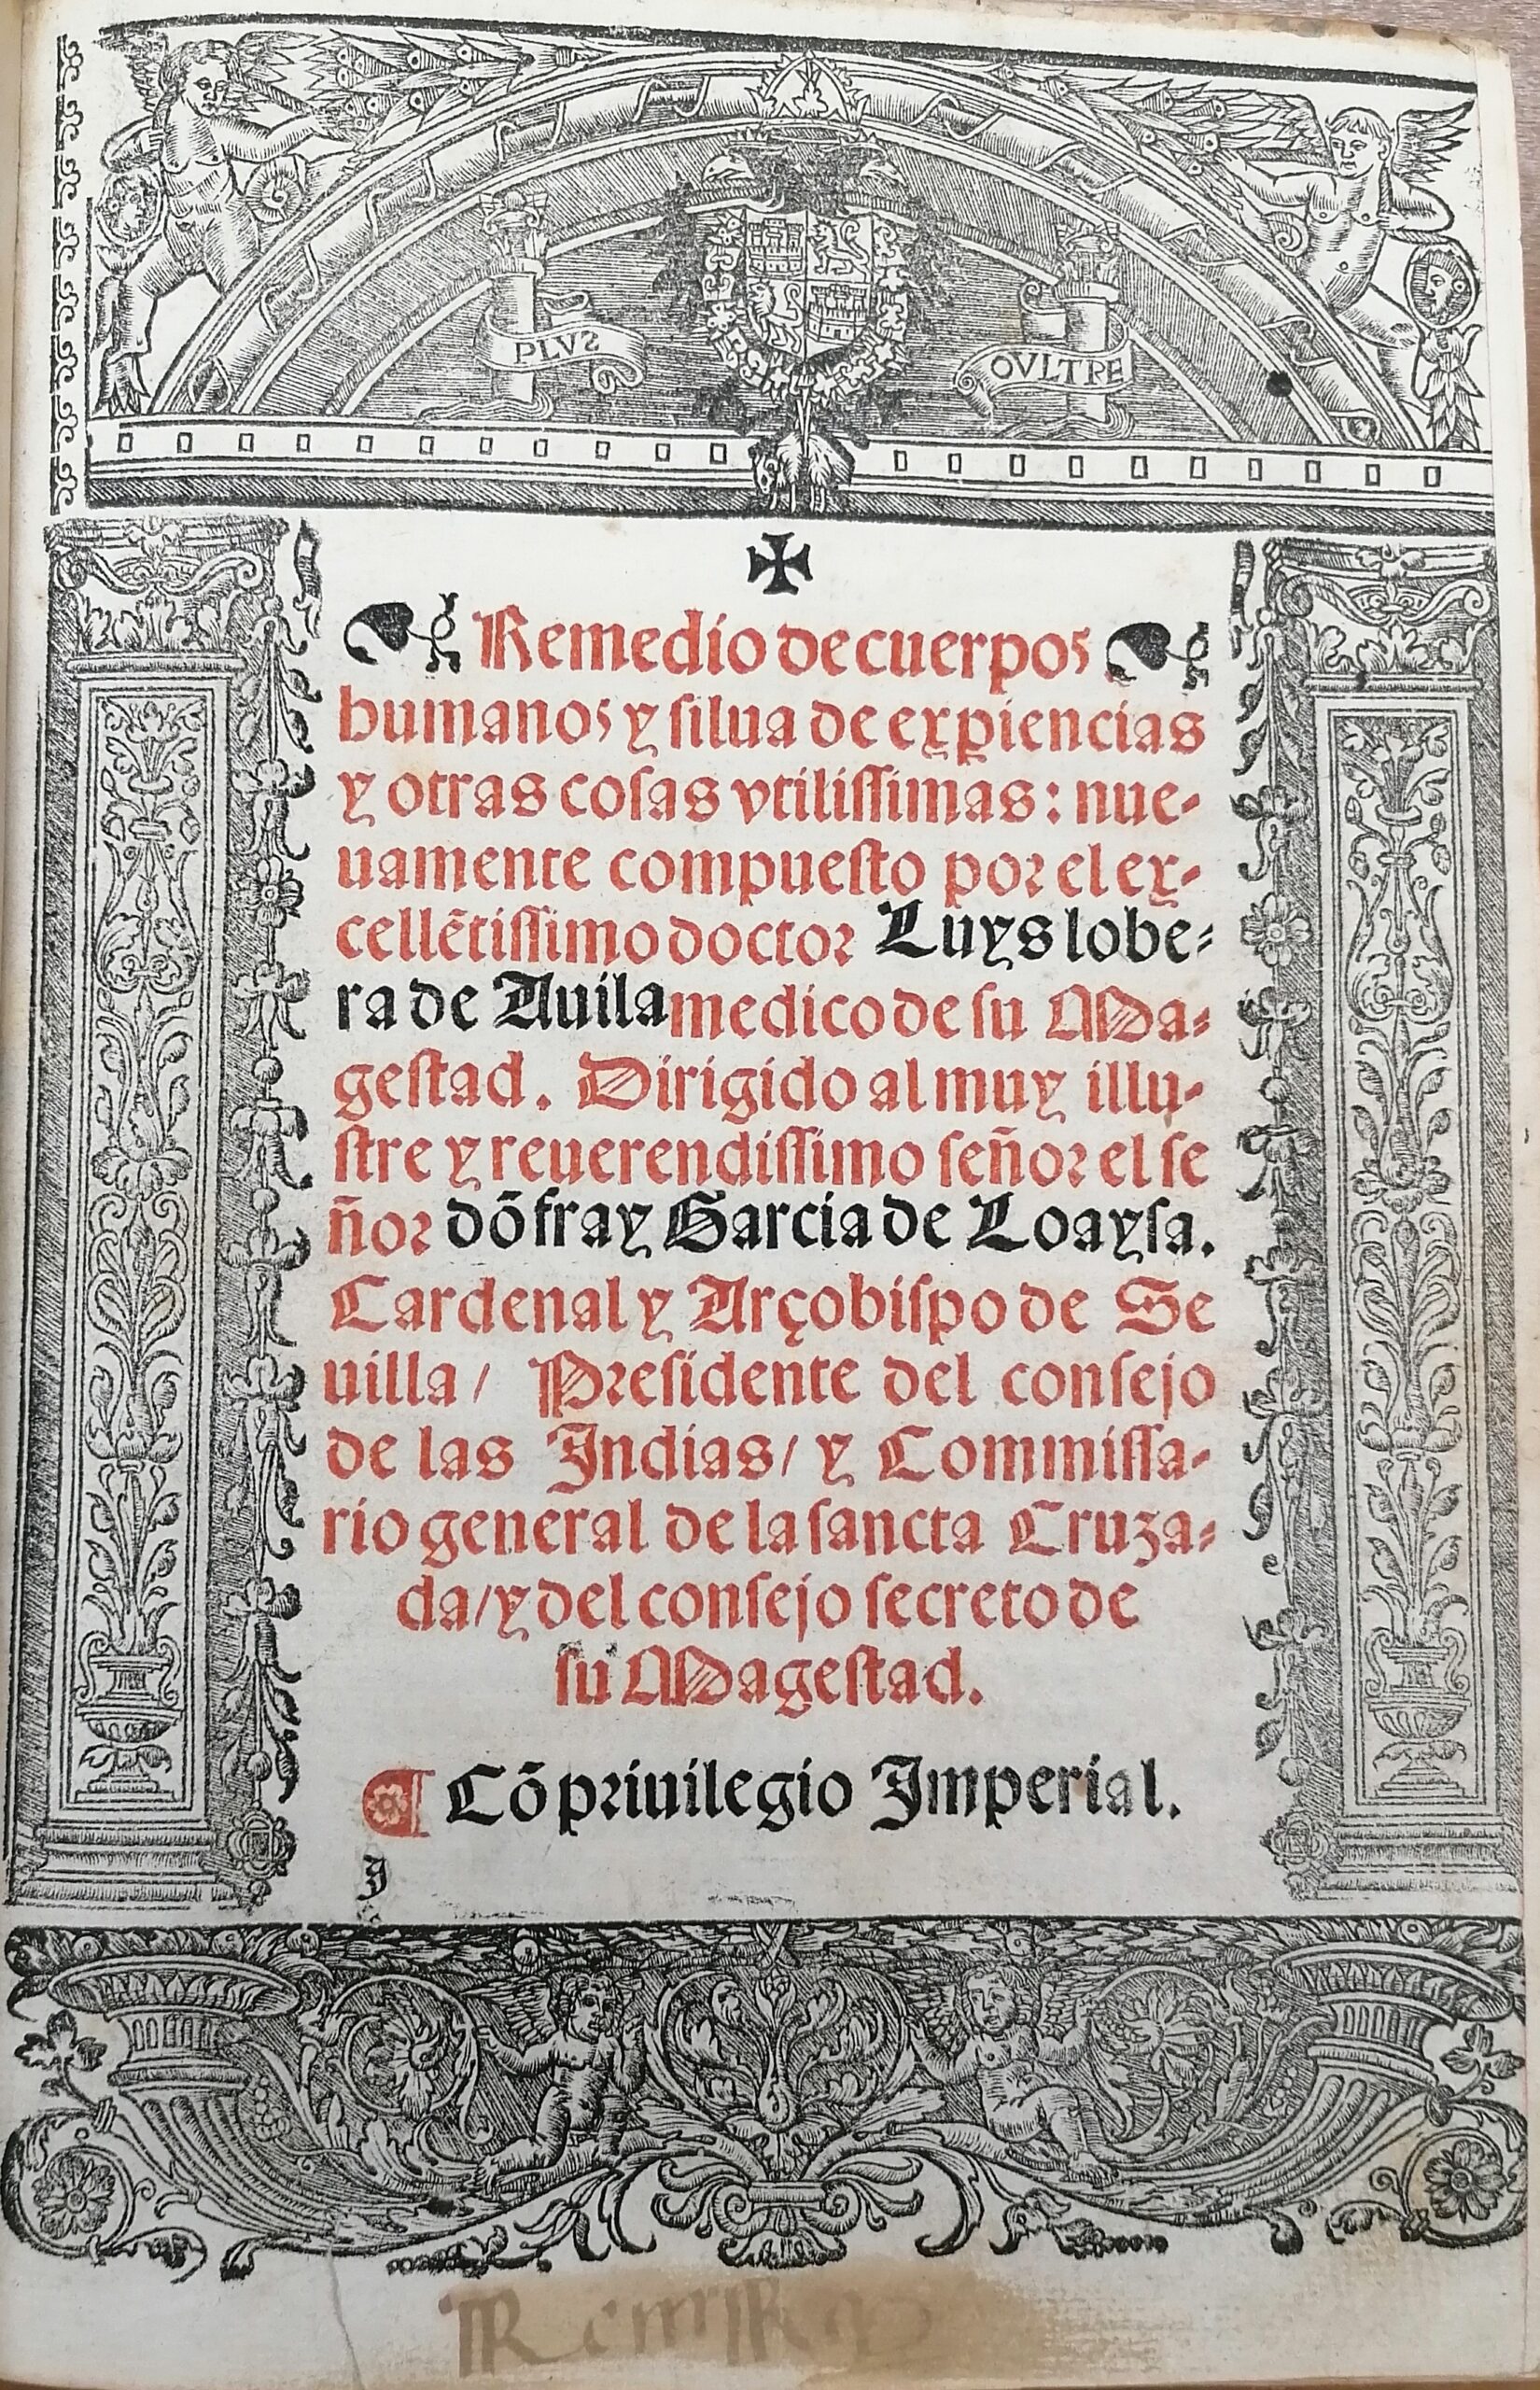 PLVS
OVLTRE
Remedio de cuerpos
humanos y silua de expiencias
y otras cosas vtilissimas: nue-
uamente compuesto por el ex-
cellẽtissimo doctor Luys lobe-
ra de Auila medico de su Ma-
gestad. Dirigido al muy illu-
stre y reuerendissimo señor el se
ñor dõ fray Garcia de Loaysa.
Cardenal y Arçobispo de Se
uilla/ Presidente del consejo
de las Indias/ y Commissa-
rio general de la sancta Cruza-
da/ y del consejo secreto de
su Magestad.
Cõ priuilegio Imperial.